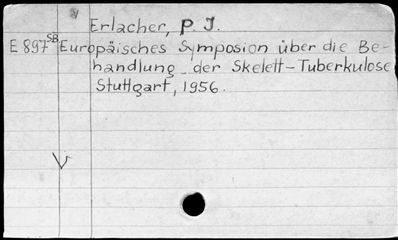 Erlacher, P. J.
E 897 SB Europäisches Symposion über die Be-
handlung der Skelett-Tuberkulose
Stuttgart, 1956.